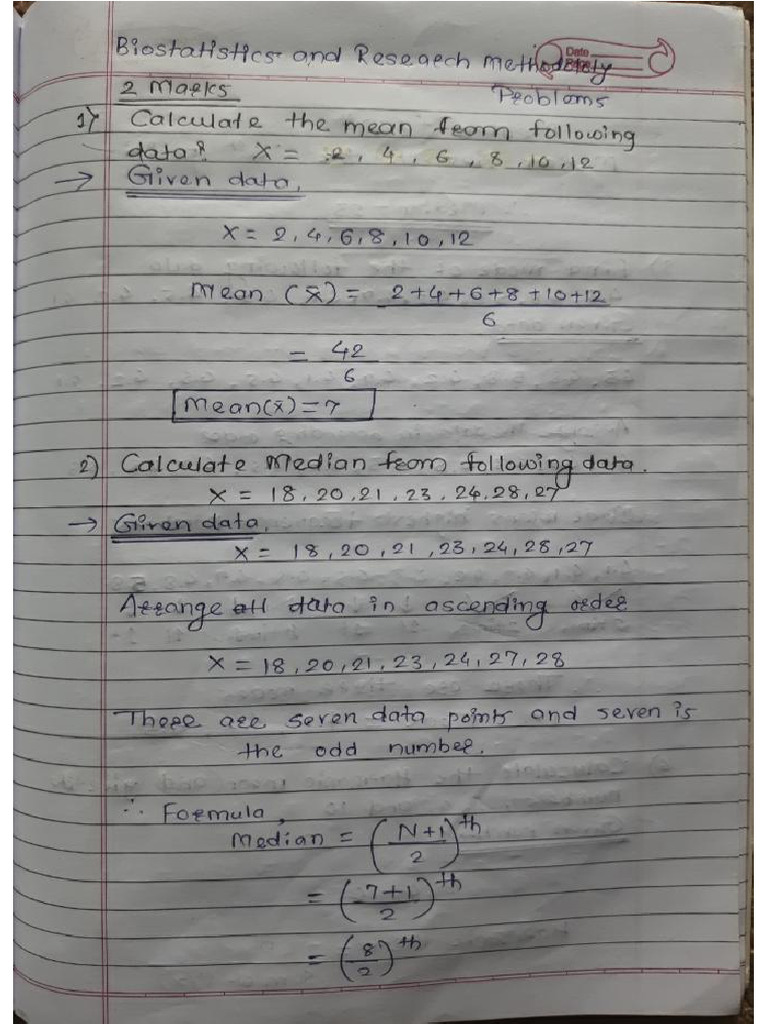 Biostatistics and Research methodology
Date
Page
2 Marks
Problems
1) Calculate the mean from following
data? X = 2, 4, 6, 8, 10, 12
→ Given data,
X = 2, 4, 6, 8, 10, 12
Mean (x̄) = 2+4+6+8+10+12
6
= 42
6
Mean(x̄) = 7
2) Calculate Median from following data.
X = 18, 20, 21, 23, 24, 28, 27
→ Given data,
X = 18, 20, 21, 23, 24, 28, 27
Arrange all data in ascending order
X = 18, 20, 21, 23, 24, 27, 28
There are seven data points and seven is
the odd number.
∴ Formula,
Median = (N+1/2)th
= (7+1/2)th
= (8/2)th